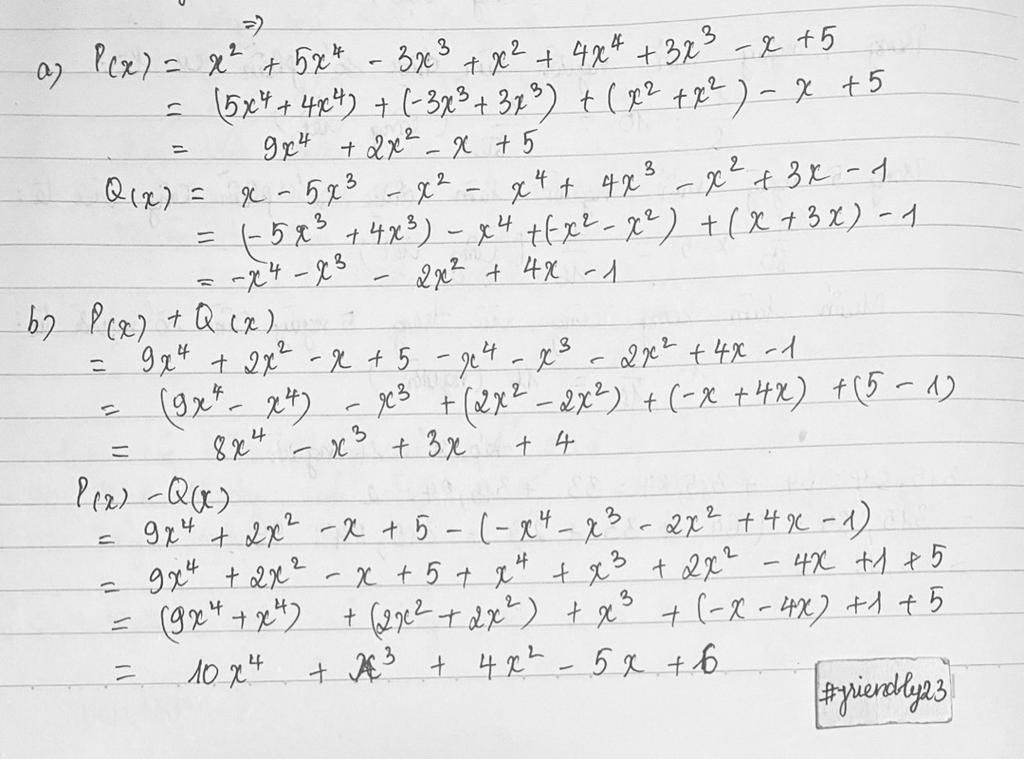 ⇒
a) P(x) = x² + 5x⁴ - 3x³ + x² + 4x⁴ + 3x³ - x + 5
= (5x⁴ + 4x⁴) + (-3x³ + 3x³) + (x² + x²) - x + 5
= 9x⁴ + 2x² - x + 5
Q(x) = x - 5x³ - x² - x⁴ + 4x³ - x² + 3x - 1
= (-5x³ + 4x³) - x⁴ + (-x² - x²) + (x + 3x) - 1
= -x⁴ - x³ - 2x² + 4x - 1
b) P(x) + Q(x)
= 9x⁴ + 2x² - x + 5 - x⁴ - x³ - 2x² + 4x - 1
= (9x⁴ - x⁴) - x³ + (2x² - 2x²) + (-x + 4x) + (5 - 1)
= 8x⁴ - x³ + 3x + 4
P(x) - Q(x)
= 9x⁴ + 2x² - x + 5 - (-x⁴ - x³ - 2x² + 4x - 1)
= 9x⁴ + 2x² - x + 5 + x⁴ + x³ + 2x² - 4x + 1 + 5
= (9x⁴ + x⁴) + (2x² + 2x²) + x³ + (-x - 4x) + 1 + 5
= 10x⁴ + x³ + 4x² - 5x + 6
#friendly23